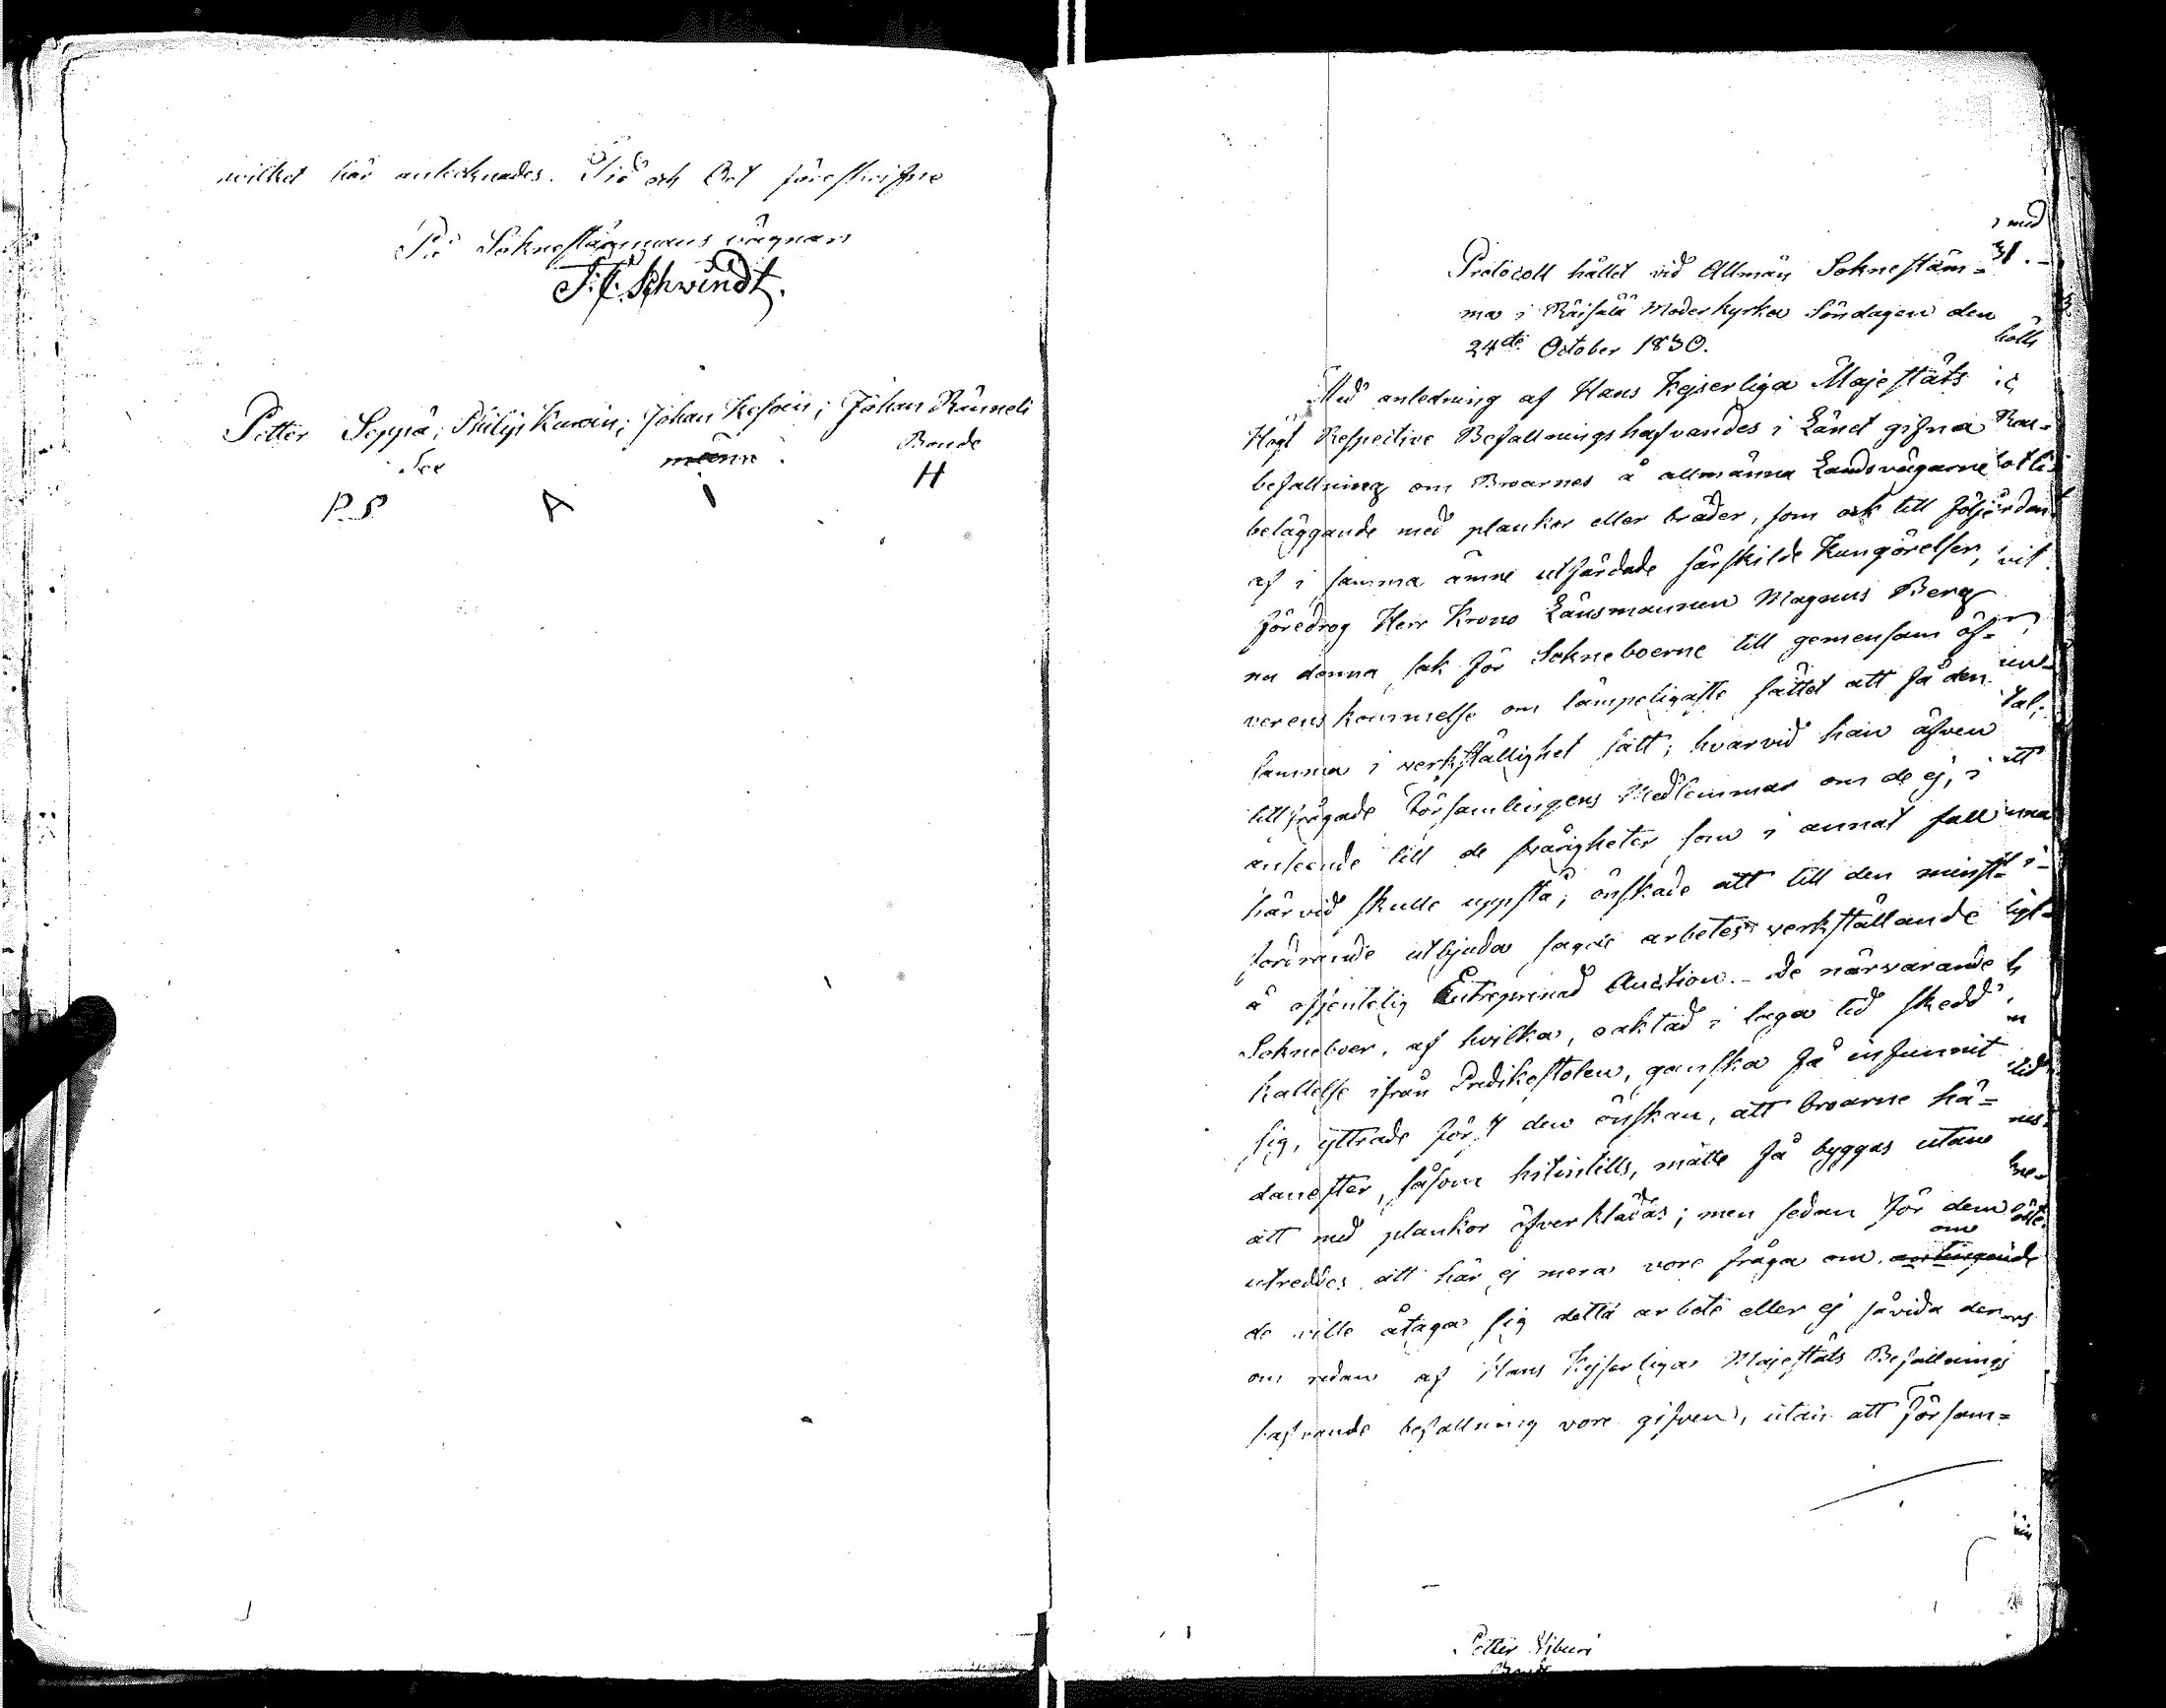 wilket här antecknades. Tid och Ort föreskrifne
På Soknestämmans vägnar
Schwindt.
Petter Seppä; Philip Kurvin; Johan Kesvin; Johan Rämeli
Bonde
P.S. A i H
Protocoll hållet vid Allmän Soknestäm=
ma i Räisälä Moderkyrka Söndagen den
24de October 1830.
Med anledning af Hans Kejserliga Majestäts
Högt Respective Befallningshafvandes i Länet gifna
befallning om Broarnes å allmänna Landsvägarne
beläggande med plankor eller bräder, som ock till följe
af i samma ämne utfärdade särskilde Kungörelser,
föredrog Herr Krono Länsmannen Magnus Berg
nu denna sak för Sokneboerne till gemensam öf=
verenskommelse om lämpeligaste sättet att få den
samma i verkställighet satt; hvarvid han äfven
tillfrågade Församlingens Medlemmar om de ej, i
anseende till de svårigheter som i annat fall
härvid skulle uppstå, önskade att till den minst=
fordrande utbjuda sagde arbetes verkställande
å offentelig Entreprenad Auction. - De närvarande
Sokneboer, af hvilka, oaktad i laga tid skedd
kallelse ifrån Predikostolen, ganska få infunnit
sig, yttrade först den önskan, att broarne hä=
danefter, såsom hitintills, måtte få byggas utan
att med plankor öfverklädas; men sedan för dem
utreddes att här ej mera vore fråga om om
de ville åtaga sig detta arbete eller ej såvida der
om redan af Hans Kejserliga Majestäts Befallnings
hafvande befallning vore gifven, utan att Försam=
Petter